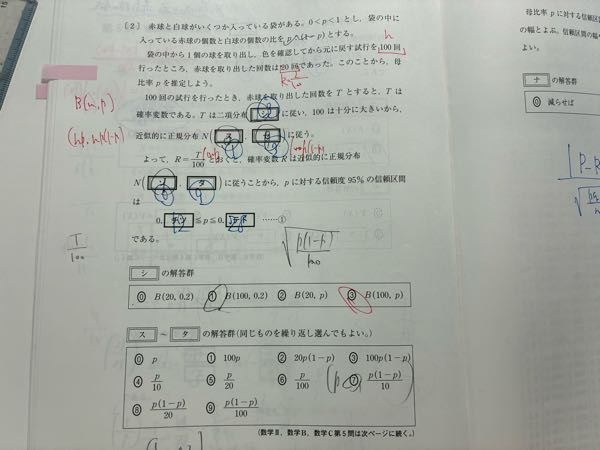 〔2〕 赤球と白球がいくつか入っている袋がある。0<p<1とし，袋の中に
入っている赤球の個数と白球の個数の比を p:(1-p) とする。
袋の中から1個の球を取り出し，色を確認してから元に戻す試行を100回
n
行ったところ，赤球を取り出した回数は20回であった。このことから，母
比率 p を推定しよう。
B(n,p)
100回の試行を行ったとき，赤球を取り出した回数を T とすると，T は
確率変数である。T は二項分布 に従い，100は十分に大きいから，
(np, np(1-p)
近似的に正規分布 N( ス , セ ) に従う。
よって，R= T/100 とおくと，確率変数 R は近似的に正規分布
N( ソ , タ ) に従うことから，p に対する信頼度95%の信頼区間
は
0. ≦p≦0. ……①
T/100
である。
√p(1-p)/100
シ の解答群
⓪ B(20, 0.2) ① B(100, 0.2) ② B(20, p) ③ B(100, p)
ス ～ タ の解答群(同じものを繰り返し選んでもよい。)
⓪ p ① 100p ② 20p(1-p) ③ 100p(1-p)
④ p/10 ⑤ p/20 ⑥ p/100 ⑦ p(1-p)/10
⑧ p(1-p)/20 ⑨ p(1-p)/100
(数学Ⅱ，数学B，数学C第5問は次ページに続く。)
母比率 p に対する信頼
の幅とよぶ。信頼区間の幅
よい。
ナ の解答群
⓪ 減らせば